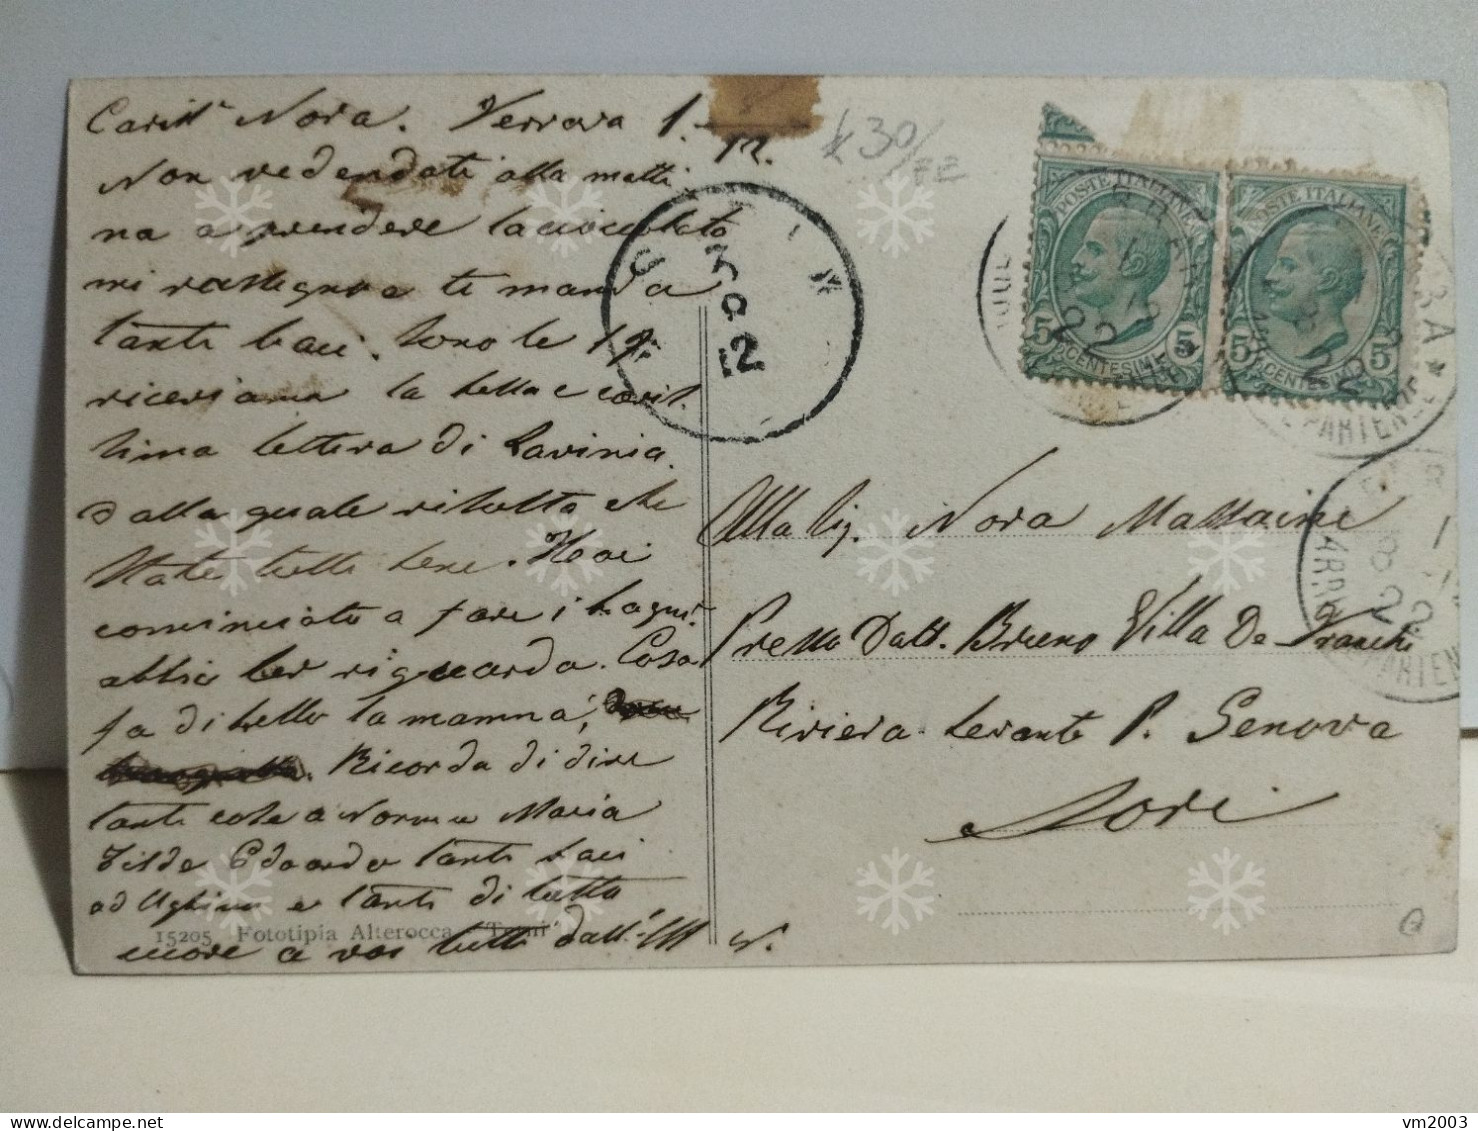 Nora. 1.
12.
Non vedendoti alla matti
na a prendere la cioccolata
mi rassegno e ti manda
tanti baci. Sono le 19
la bella e
sima lettera di Lavinia.
dalla quale risulta che
state tutti bene. Hai
cominciato a fare i bagni.
abbi per riguarda. Cosa
fa di bello la mamma,
Ricorda di dire
tante cose a Norma Maria
Tilde Edoardo tanti baci
ad e tanti di tutto
cuore a voi tutti dall'
15205 Fototipia Alterocca - Terni
POSTE ITALIANE
5 CENTESIMI 5
POSTE ITALIANE
5 CENTESIMI 5
3
8
12
Alla Sig. Nora Massaini
Presso Dott. Bruno Villa De Franchi
Riviera Levante P. Genova
Sori
30/